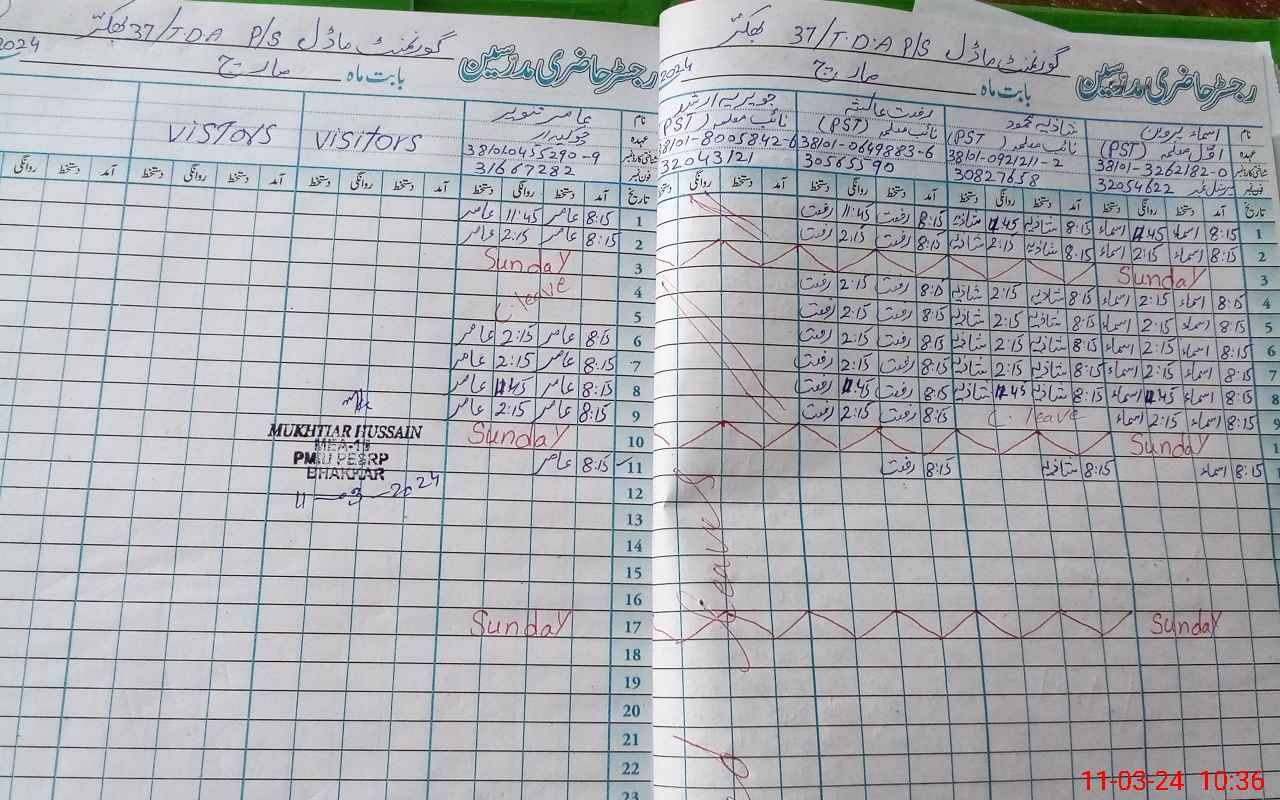 گورنمنٹ ماڈل P/S 37/T.D.A بھکر
رجسٹر حاضری مدرسین بابت ماہ مارچ 2024
نام عامر تنویر
عہدہ چوکیدار VISITORS VISTORS
شناختی کارڈ نمبر 38101-0455290-9
فون نمبر 31667282
تاریخ آمد دستخط روانگی دستخط آمد دستخط روانگی دستخط آمد دستخط روانگی دستخط آمد دستخط روانگی
1 8:15 عامر 11:45 عامر
2 8:15 عامر 2:15 عامر
3 Sunday
4 C. leave
5
6 8:15 عامر 2:15 عامر
7 8:15 عامر 2:15 عامر
8 8:15 عامر 11:45 عامر
9 8:15 عامر 2:15 عامر
10 Sunday
11 8:15 عامر
MUKHTIAR HUSSAIN
MEA-15
PMIU PESRP
BHAKKAR
11-03-2024
12
13
14
15
16
17 Sunday
18
19
20
21
22
23
گورنمنٹ ماڈل P/S 37/T.D.A بھکر
رجسٹر حاضری مدرسین بابت ماہ مارچ 2024
نام اسماء پروین شازیہ محمود رفعت عائشہ جویریہ ارشد
عہدہ اوّل معلمہ (PST) نائب معلمہ (PST نائب معلمہ (PST) نائب معلمہ (PST)
شناختی کارڈ نمبر 38101-3262182-0 38101-0921211-2 38101-0649883-6 38101-8005842-6
پرسنل نمبر 32054622 30827658 30565590 32043121
تاریخ آمد دستخط روانگی دستخط آمد دستخط روانگی دستخط آمد دستخط روانگی دستخط آمد دستخط روانگی
1 8:15 اسماء 11:45 اسماء 8:15 شازیہ 11:45 شازیہ 8:15 رفعت 11:45 رفعت
2 8:15 اسماء 2:15 اسماء 8:15 شازیہ 2:15 شازیہ 8:15 رفعت 2:15 رفعت
3 Sunday
4 8:15 اسماء 2:15 اسماء 8:15 شازیہ 2:15 شازیہ 8:15 رفعت 2:15 رفعت
5 8:15 اسماء 2:15 اسماء 8:15 شازیہ 2:15 شازیہ 8:15 رفعت 2:15 رفعت
6 8:15 اسماء 2:15 اسماء 8:15 شازیہ 2:15 شازیہ 8:15 رفعت 2:15 رفعت
7 8:15 اسماء 2:15 اسماء 8:15 شازیہ 2:15 شازیہ 8:15 رفعت 2:15 رفعت
8 8:15 اسماء 11:45 اسماء 8:15 شازیہ 11:45 شازیہ 8:15 رفعت 11:45 رفعت
9 8:15 اسماء 2:15 اسماء C. leave 8:15 رفعت 2:15 رفعت
1 Sunday
1 8:15 اسماء 8:15 شازیہ 8:15 رفعت
Leave
Sunday
11-03-24 10:36